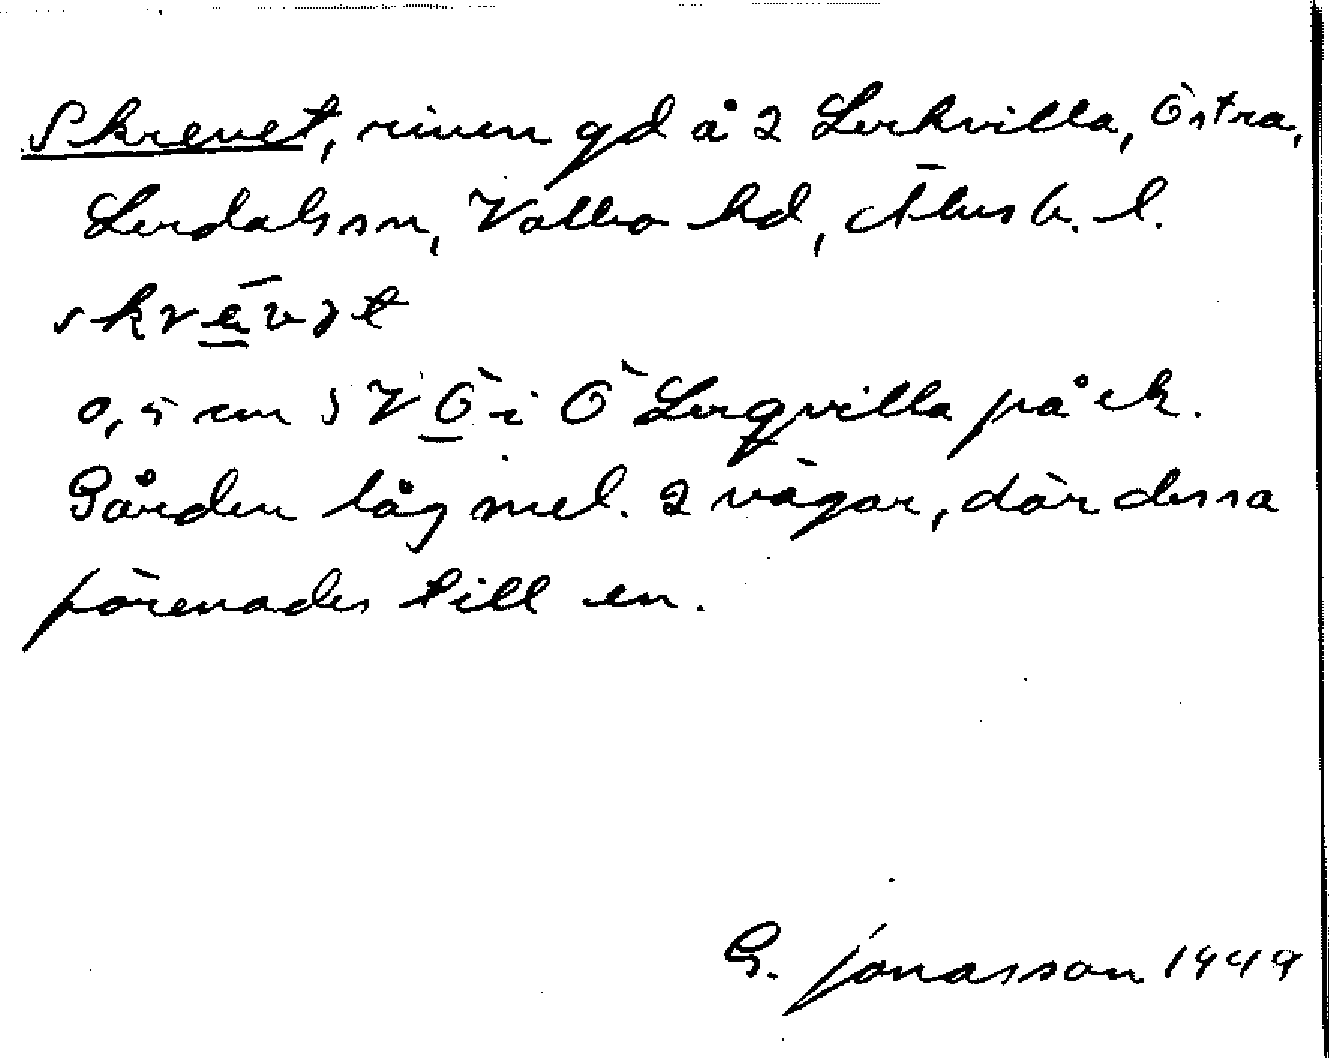 Skrevet, riven gd å 2 Lerkvilla, Östra,
Lerdals sn, Valbo hd, Älvsb. l.
skrēvət
0,5 cm SV Ö i Ö Lerqvilla på ek.
Gården låg mel. 2 vägar, där dessa
förenades till en.
G. Jonasson 1949